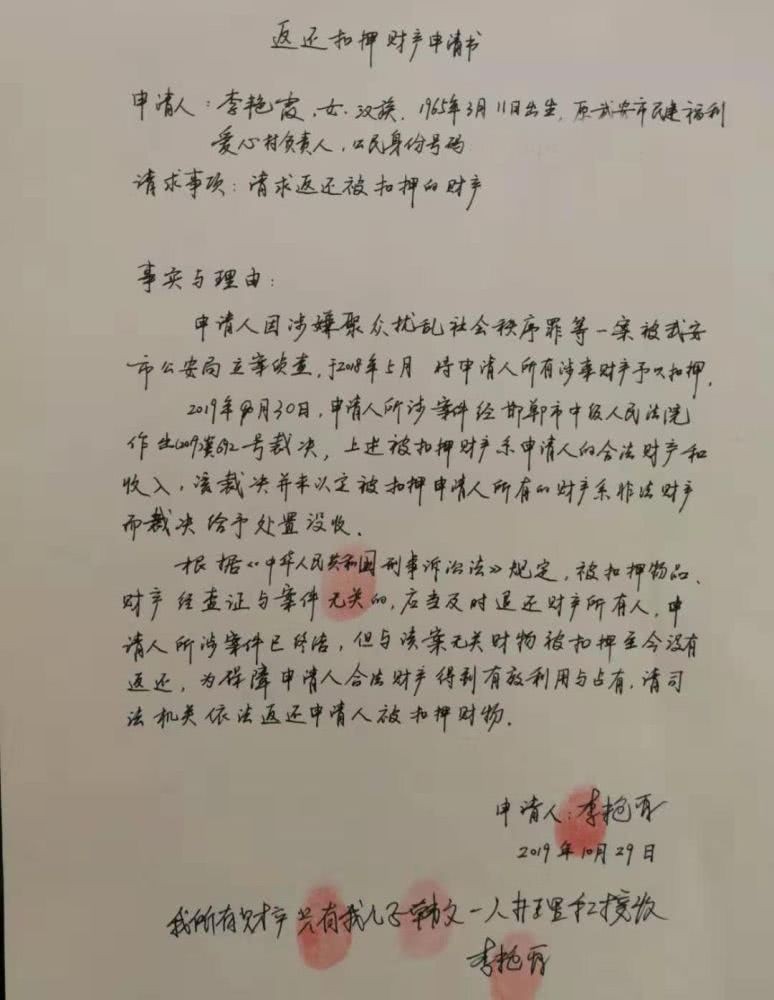 返还扣押财产申请书
申请人：李艳霞，女，汉族，1965年3月11日出生，原武安市民建福利
爱心村负责人，公民身份号码
请求事项：请求返还被扣押的财产
事实与理由：
申请人因涉嫌聚众扰乱社会秩序罪等一案被武安
市公安局立案侦查，于2018年5月 将申请人所有涉案财产予以扣押。
2019年 月30日，申请人所涉案件经邯郸市中级人民法院
作出 号裁决，上述被扣押财产系申请人的合法财产和
收入，该裁决并未认定被扣押申请人所有的财产系非法财产
而裁决给予处置没收。
根据《中华人民共和国刑事诉讼法》规定，被扣押物品、
财产经查证与案件无关的，应当及时退还财产所有人，申
请人所涉案件已终结，但与该案无关财物被扣押至今没有
返还，为保障申请人合法财产得到有效利用与占有，请司
法机关依法返还申请人被扣押财物。
申请人：李艳霞
2019年10月29日
我所有财产只有我儿子 文一人 理和接收
李艳霞